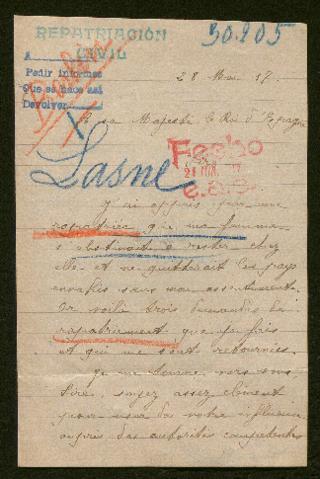 REPATRIACIÓN
CIVIL
30.905
A
Pedir informes
Que se hace así
Devolver
28 Mai 17.
A sa Majesté le Roi d'Espagne
Fecho
Lasne
J'ai appris par une
rapatriée que ma femme
s'obstinait à rester chez
elle et ne quitterait les pays
envahis sans mon assentiment.
Or voilà trois demandes de
rapatriement que je fais
et qui me sont retournées.
Je me tourne vers vous
Sire, soyez assez clément
pour user de votre influence
auprès des autorités compétentes